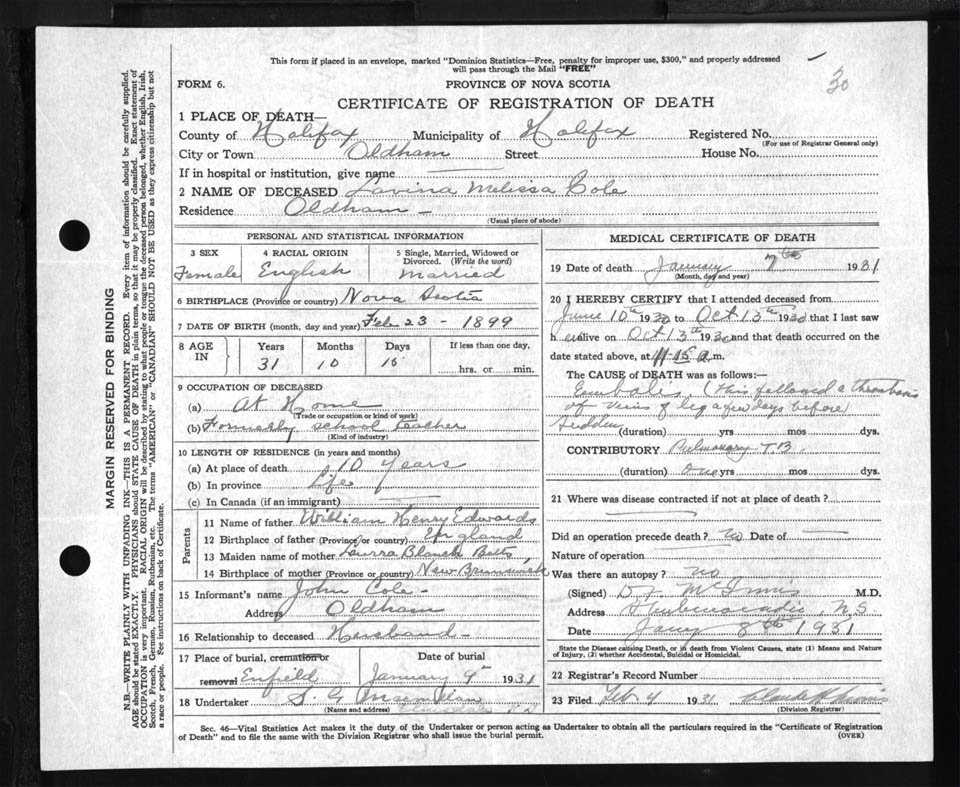 This form if placed in an envelope, marked "Dominion Statistics—Free, penalty for improper use, $300," and properly addressed
will pass through the Mail "FREE"
30
FORM 6.
PROVINCE OF NOVA SCOTIA
CERTIFICATE OF REGISTRATION OF DEATH
1 PLACE OF DEATH—
County of Halifax Municipality of Halifax Registered No.
(For use of Registrar General only)
City or Town Oldham Street House No.
If in hospital or institution, give name
2 NAME OF DECEASED Lavina Melissa Cole
Residence Oldham
(Usual place of abode)
PERSONAL AND STATISTICAL INFORMATION
3 SEX 4 RACIAL ORIGIN 5 Single, Married, Widowed or
Divorced. (Write the word)
Female English Married
6 BIRTHPLACE (Province or country) Nova Scotia
7 DATE OF BIRTH (month, day and year) Feb 23 - 1899
8 AGE IN Years Months Days If less than one day,
31 10 15 hrs. or min.
9 OCCUPATION OF DECEASED
(a) At Home
(Trade or occupation or kind of work)
(b) Formerly school teacher
(Kind of industry)
10 LENGTH OF RESIDENCE (in years and months)
(a) At place of death 10 years
(b) In province Life
(c) In Canada (if an immigrant)
Parents
11 Name of father William Henry Edwards
12 Birthplace of father (Province or country) England
13 Maiden name of mother Laurra Blanch Betts
14 Birthplace of mother (Province or country) New Brunswick
15 Informant's name John Cole
Address Oldham
16 Relationship to deceased Husband
17 Place of burial, cremation or Date of burial
removal Enfield January 9th 1931
18 Undertaker S. G Macmillan
(Name and address)
MEDICAL CERTIFICATE OF DEATH
19 Date of death January 7th 1931
(Month, day and year)
20 I HEREBY CERTIFY that I attended deceased from
June 10th 1930 to Oct 13th 1930 that I last saw
h er alive on Oct 13th 1930 and that death occurred on the
date stated above, at 11.15 a.m.
The CAUSE of DEATH was as follows:—
Emboli (this followed a thrombosis
of veins of leg a few days before)
Sudden (duration) yrs mos. dys.
CONTRIBUTORY Pulmonary T.B.
(duration) One yrs mos. dys.
21 Where was disease contracted if not at place of death?
Did an operation precede death? no Date of
Nature of operation
Was there an autopsy? no
(Signed) D F McInnis M.D.
Address Shubenacadie, N.S
Date Jany 8th 1931
State the Disease causing Death, or in death from Violent Causes, state (1) Means and Nature
of Injury, (2) whether Accidental, Suicidal or Homicidal.
22 Registrar's Record Number
23 Filed Feb 4 1931
(Division Registrar)
Sec. 46—Vital Statistics Act makes it the duty of the Undertaker or person acting as Undertaker to obtain all the particulars required in the "Certificate of Registration
of Death" and to file the same with the Division Registrar who shall issue the burial permit.
(OVER)
MARGIN RESERVED FOR BINDING
N.B.—WRITE PLAINLY WITH UNFADING INK—THIS IS A PERMANENT RECORD. Every item of information should be carefully supplied.
AGE should be stated EXACTLY. PHYSICIANS should STATE CAUSE OF DEATH in plain terms, so that it may be properly classified. Exact statement of
OCCUPATION is very important. RACIAL ORIGIN will be described by stating to what people or tongue the deceased person belonged, whether English, Irish,
Scotch, French, German, Russian, Ruthenian, etc. The terms "AMERICAN" or "CANADIAN" SHOULD NOT BE USED as they express citizenship but not
a race or people. See instructions on back of Certificate.